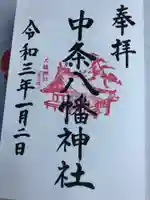 奉拝
中条八幡神社
令和三年一月二日